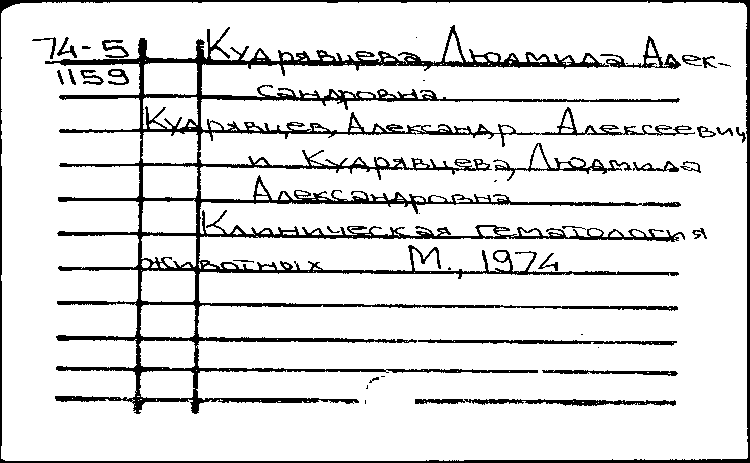 74-5 Кудрявцева, Людмила Алек-
1159 сандровна.
Кудрявцев, Александр Алексеевич
и Кудрявцева, Людмила
Александровна
Клиническая гематология
животных М., 1974